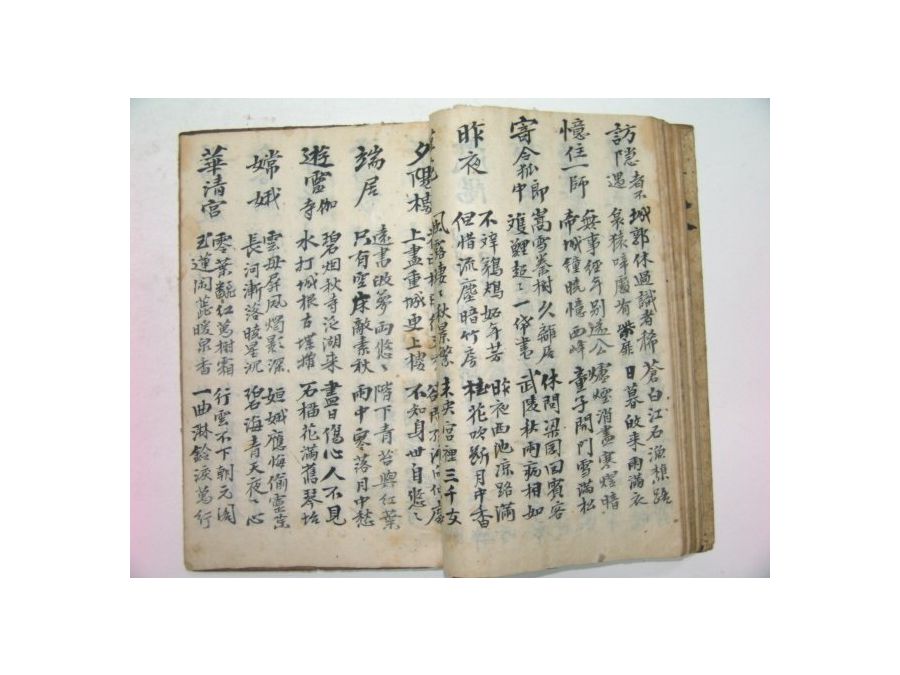 訪隱者不遇
城郭休過識者稀 蒼白江石漁樵路
袅猿啼處有柴扉 日暮敀来雨滿衣
憶住一師
無事經年別遠公 爐烟消盡寒燈暗
帝城鐘曉憶西峰 童子開門雪滿松
寄令狐郎中
嵩雲秦樹久離居 休問梁園旧賓客
雙鯉超〻一帋書 武陵秋雨病相如
昨夜
不辞鶗鴂妒年芳 昨夜西池凉路滿
但惜流塵暗竹房 桂花吹斷月中香
未央宮裡三千女
風露凄〻秋景繁
夕陽樓
上盡重城更上樓 不知身世自悠〻
端居
遠書敀夢両悠〻 階下青苔與紅葉
只有空床敵素秋 雨中寥落月中愁
遊靈伽寺
碧烟秋寺泛湖来 盡日傷心人不見
水打城根古堞摧 石榴花滿舊琴坮
嫦娥
雲母屏風燭影深 姮娥應悔偷靈藥
長河漸落曉星沉 碧海青天夜〻心
華清宮
零葉翻紅萬樹霜 行雲不下朝元閣
玉蓮開蕊暖泉香 一曲淋鈴淚萬行